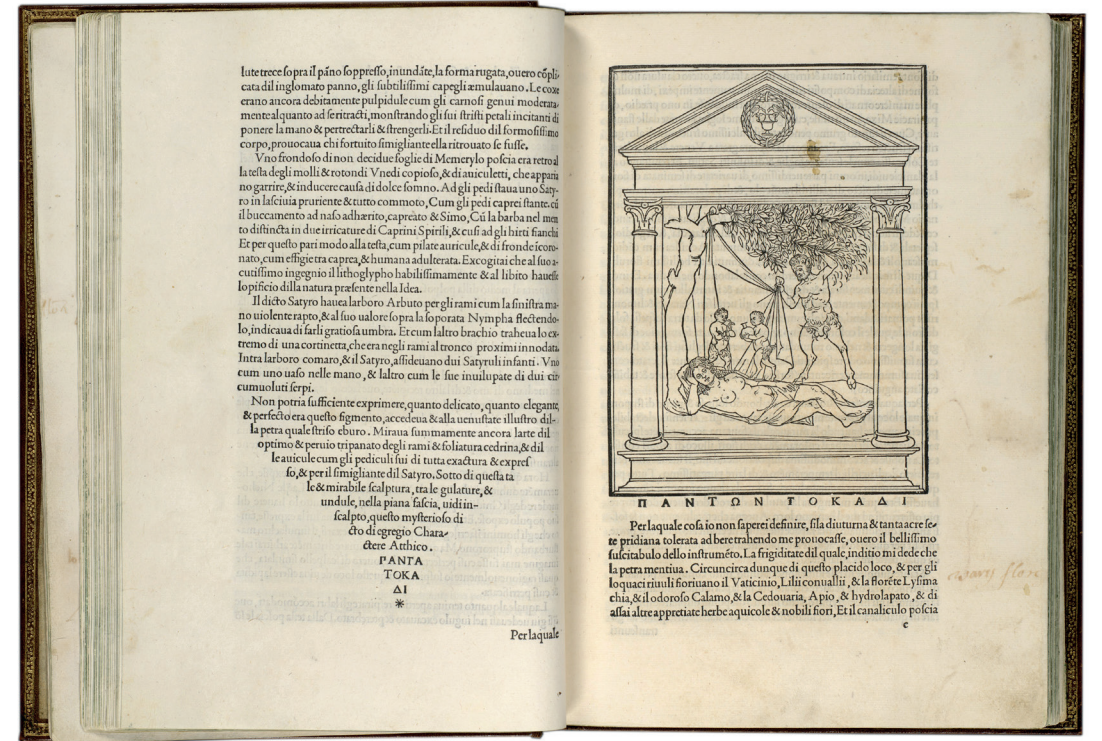 lute trece sopra il pãno soppresso, inundãte, la forma rugata, ouero cõpli-
cata dil inglomato panno, gli subtilissimi capegli æmulauano. Le coxe
erano ancora debitamente pulpidule cum gli carnosi genui moderata-
mente alquanto ad se ritracti, monstrando gli sui stricti petali incitanti di
ponere la mano & pertrectarli & strengerli. Et il residuo dil formosissimo
corpo, prouocaua chi fortuito simigliante ella ritrouato se fusse.
Vno frondoso di non decidue foglie di Memerylo poscia era retro al
la testa degli molli & rotondi Vnedi copioso, & di auiculetti, che apparia
no garrire, & inducere causa di dolce somno. Ad gli pedi staua uno Saty-
ro in lasciuia pruriente & tutto commoto, Cum gli pedi caprei stante. cũ
il buccamento ad naso adhærito, capreato & Simo, Cũ la barba nel men
to distincta in due irricature di Caprini Spirili, & cusi ad gli hirti fianchi
Et per questo pari modo alla testa, cum pilate auricule, & di fronde icoro-
nato, cum effigie tra caprea, & humana adulterata. Excogitai che al suo a-
cutissimo ingegnio il lithoglypho habilissimamente & al libito hauesse
lopificio dilla natura præsente nella Idea.
Il dicto Satyro hauea larboro Arbuto per gli rami cum la sinistra ma-
no uiolente rapto, & al suo ualore sopra la soporata Nympha flectendo-
lo, indicaua di farli gratiosa umbra. Et cum laltro brachio traheua lo ex-
tremo di una cortinetta, che era negli rami al tronco proximi innodata.
Intra larboro comaro, & il Satyro, assideuano dui Satyruli infanti. Vno
cum uno uaso nelle mano, & laltro cum le sue inuilupate di dui cir
cumuoluti serpi.
Non potria sufficiente exprimere, quanto delicato, quanto elegante,
& perfecto era questo figmento, accedeua & alla uenustate illustro dil-
la petra quale striso eburo. Miraua summamente ancora larte dil
optimo & peruio tripanato degli rami & foliatura cedrina, & dil
le auicule cum gli pediculi sui di tutta exactura & expres
so, & per il simigliante dil Satyro. Sotto di questa ta
le & mirabile scalptura, tra le gulature, &
undule, nella piana fascia, uidi in-
scalpto, questo mysterioso di
cto di egregio Chara-
ctere Atthico.
ΓΑΝΤΑ
ΤΟΚΑ
ΔΙ
*
Per laquale
ΠΑΝΤΩΝ ΤΟΚΑΔΙ
Per laquale cosa io non saperei definire, si la diuturna & tanta acre se-
te pridiana tolerata ad bere trahendo me prouocasse, ouero il bellissimo
suscitabulo dello instrumẽto. La frigiditate dil quale, inditio mi dede che
la petra mentiua. Circuncirca dunque di questo placido loco, & per gli
loquaci riuuli fioriuano il Vaticinio, Lilii conuallii, & la florẽte Lysima
chia, & il odoroso Calamo, & la Cedouaria, Apio, & hydrolapato, & di
assai altre appretiate herbe aquicole & nobili fiori, Et il canaliculo poscia
c